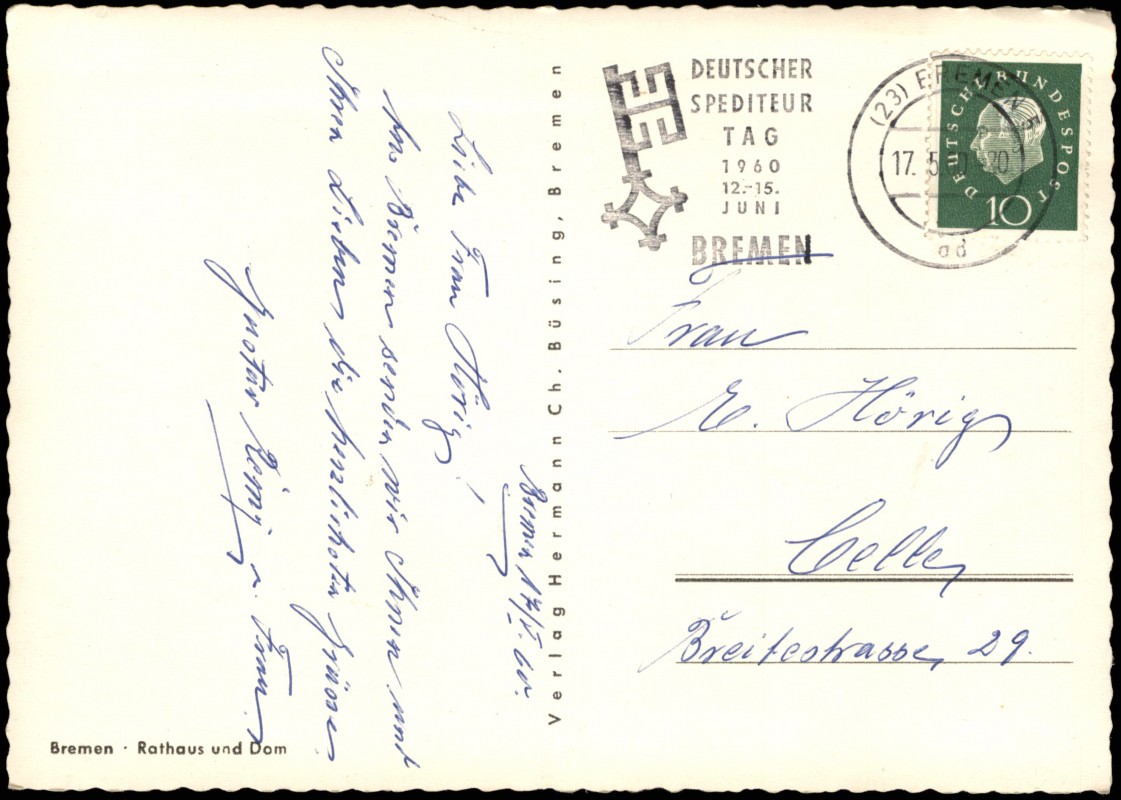 Bremen 17/V. 60.
Liebe Frau Hörig!
Aus Bremen senden wir Ihnen und
Ihren Lieben die herzlichsten Grüsse
Gustav u. Frau
Bremen · Rathaus und Dom
Verlag Hermann Ch. Büsing, Bremen
DEUTSCHER
SPEDITEUR
TAG
1960
12.-15.
JUNI
BREMEN
(23) BREMEN
17. 5.
ad
DEUTSCHE BUNDESPOST
10
Frau
E. Hörig
Celle
Breitestrasse 29.